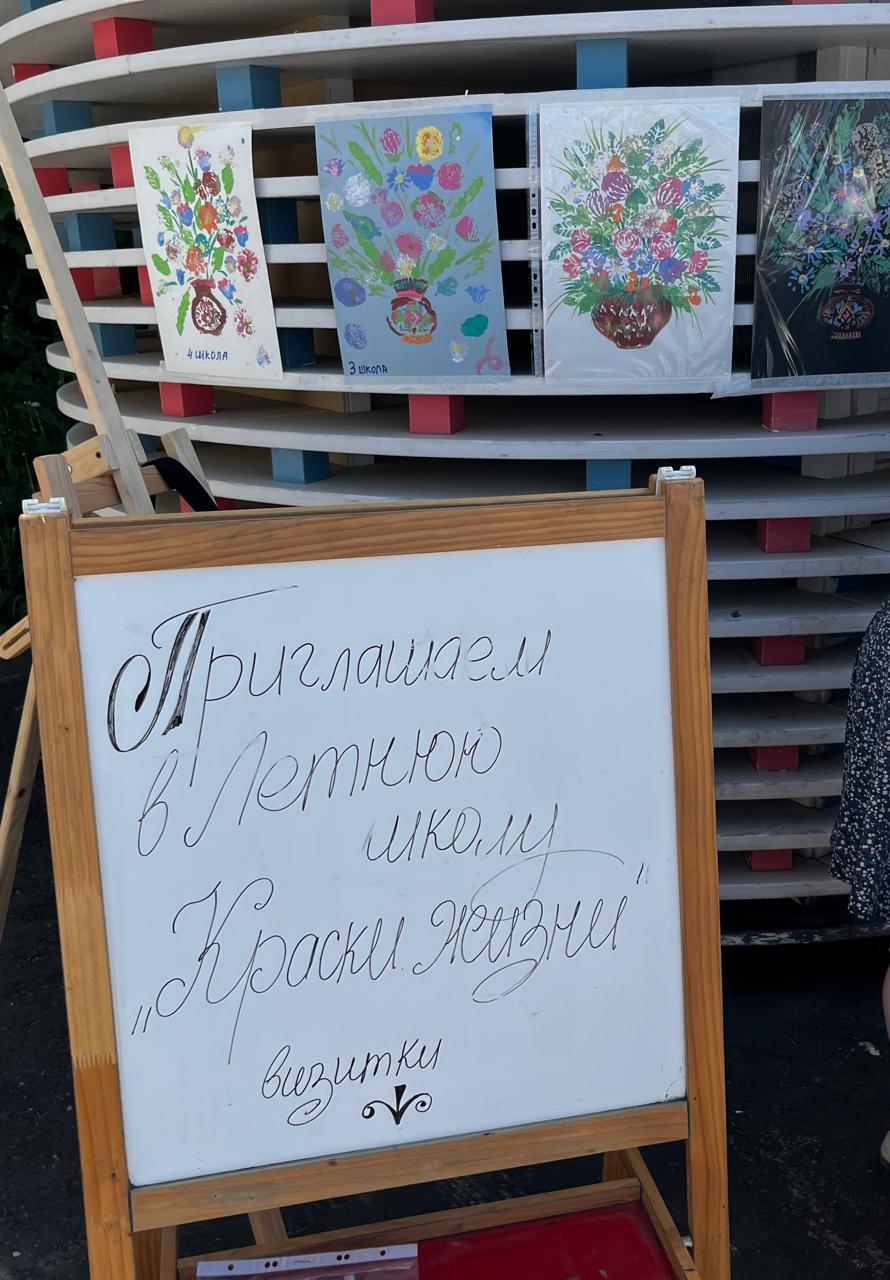 4 ШКОЛА
3 ШКОЛА
Приглашаем
в Летнюю
школу
„Краски жизни"
визитки